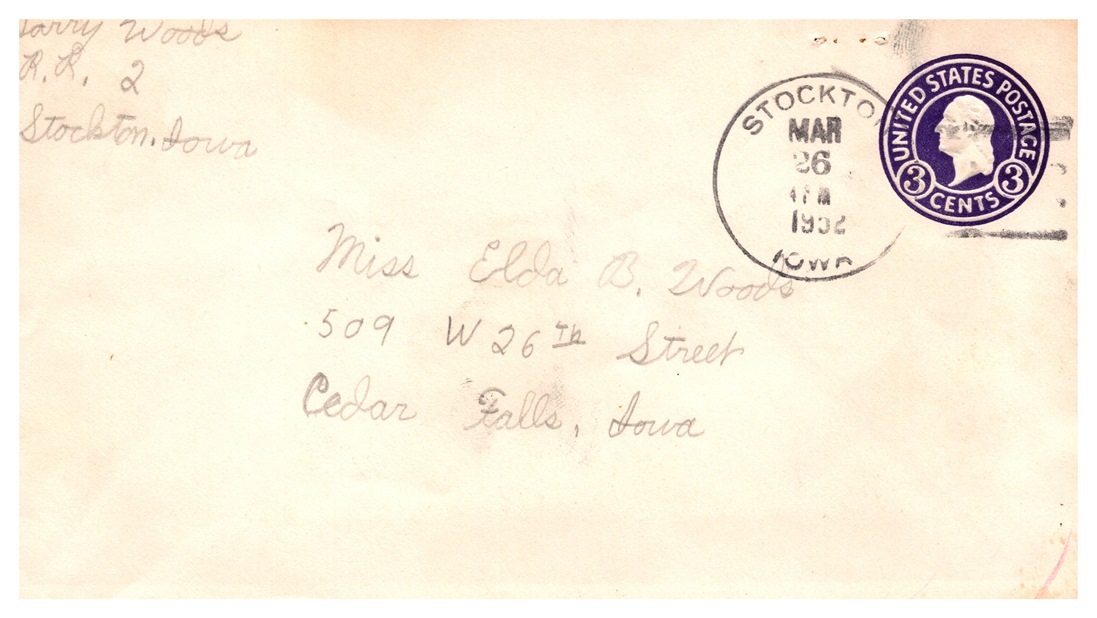 Woods
R.R. 2
Stockton, Iowa
STOCKTO
MAR
26
1952
IOWA
UNITED STATES POSTAGE
3 CENTS 3
Miss Elda B. Woods
509 W 26th Street
Cedar Falls, Iowa